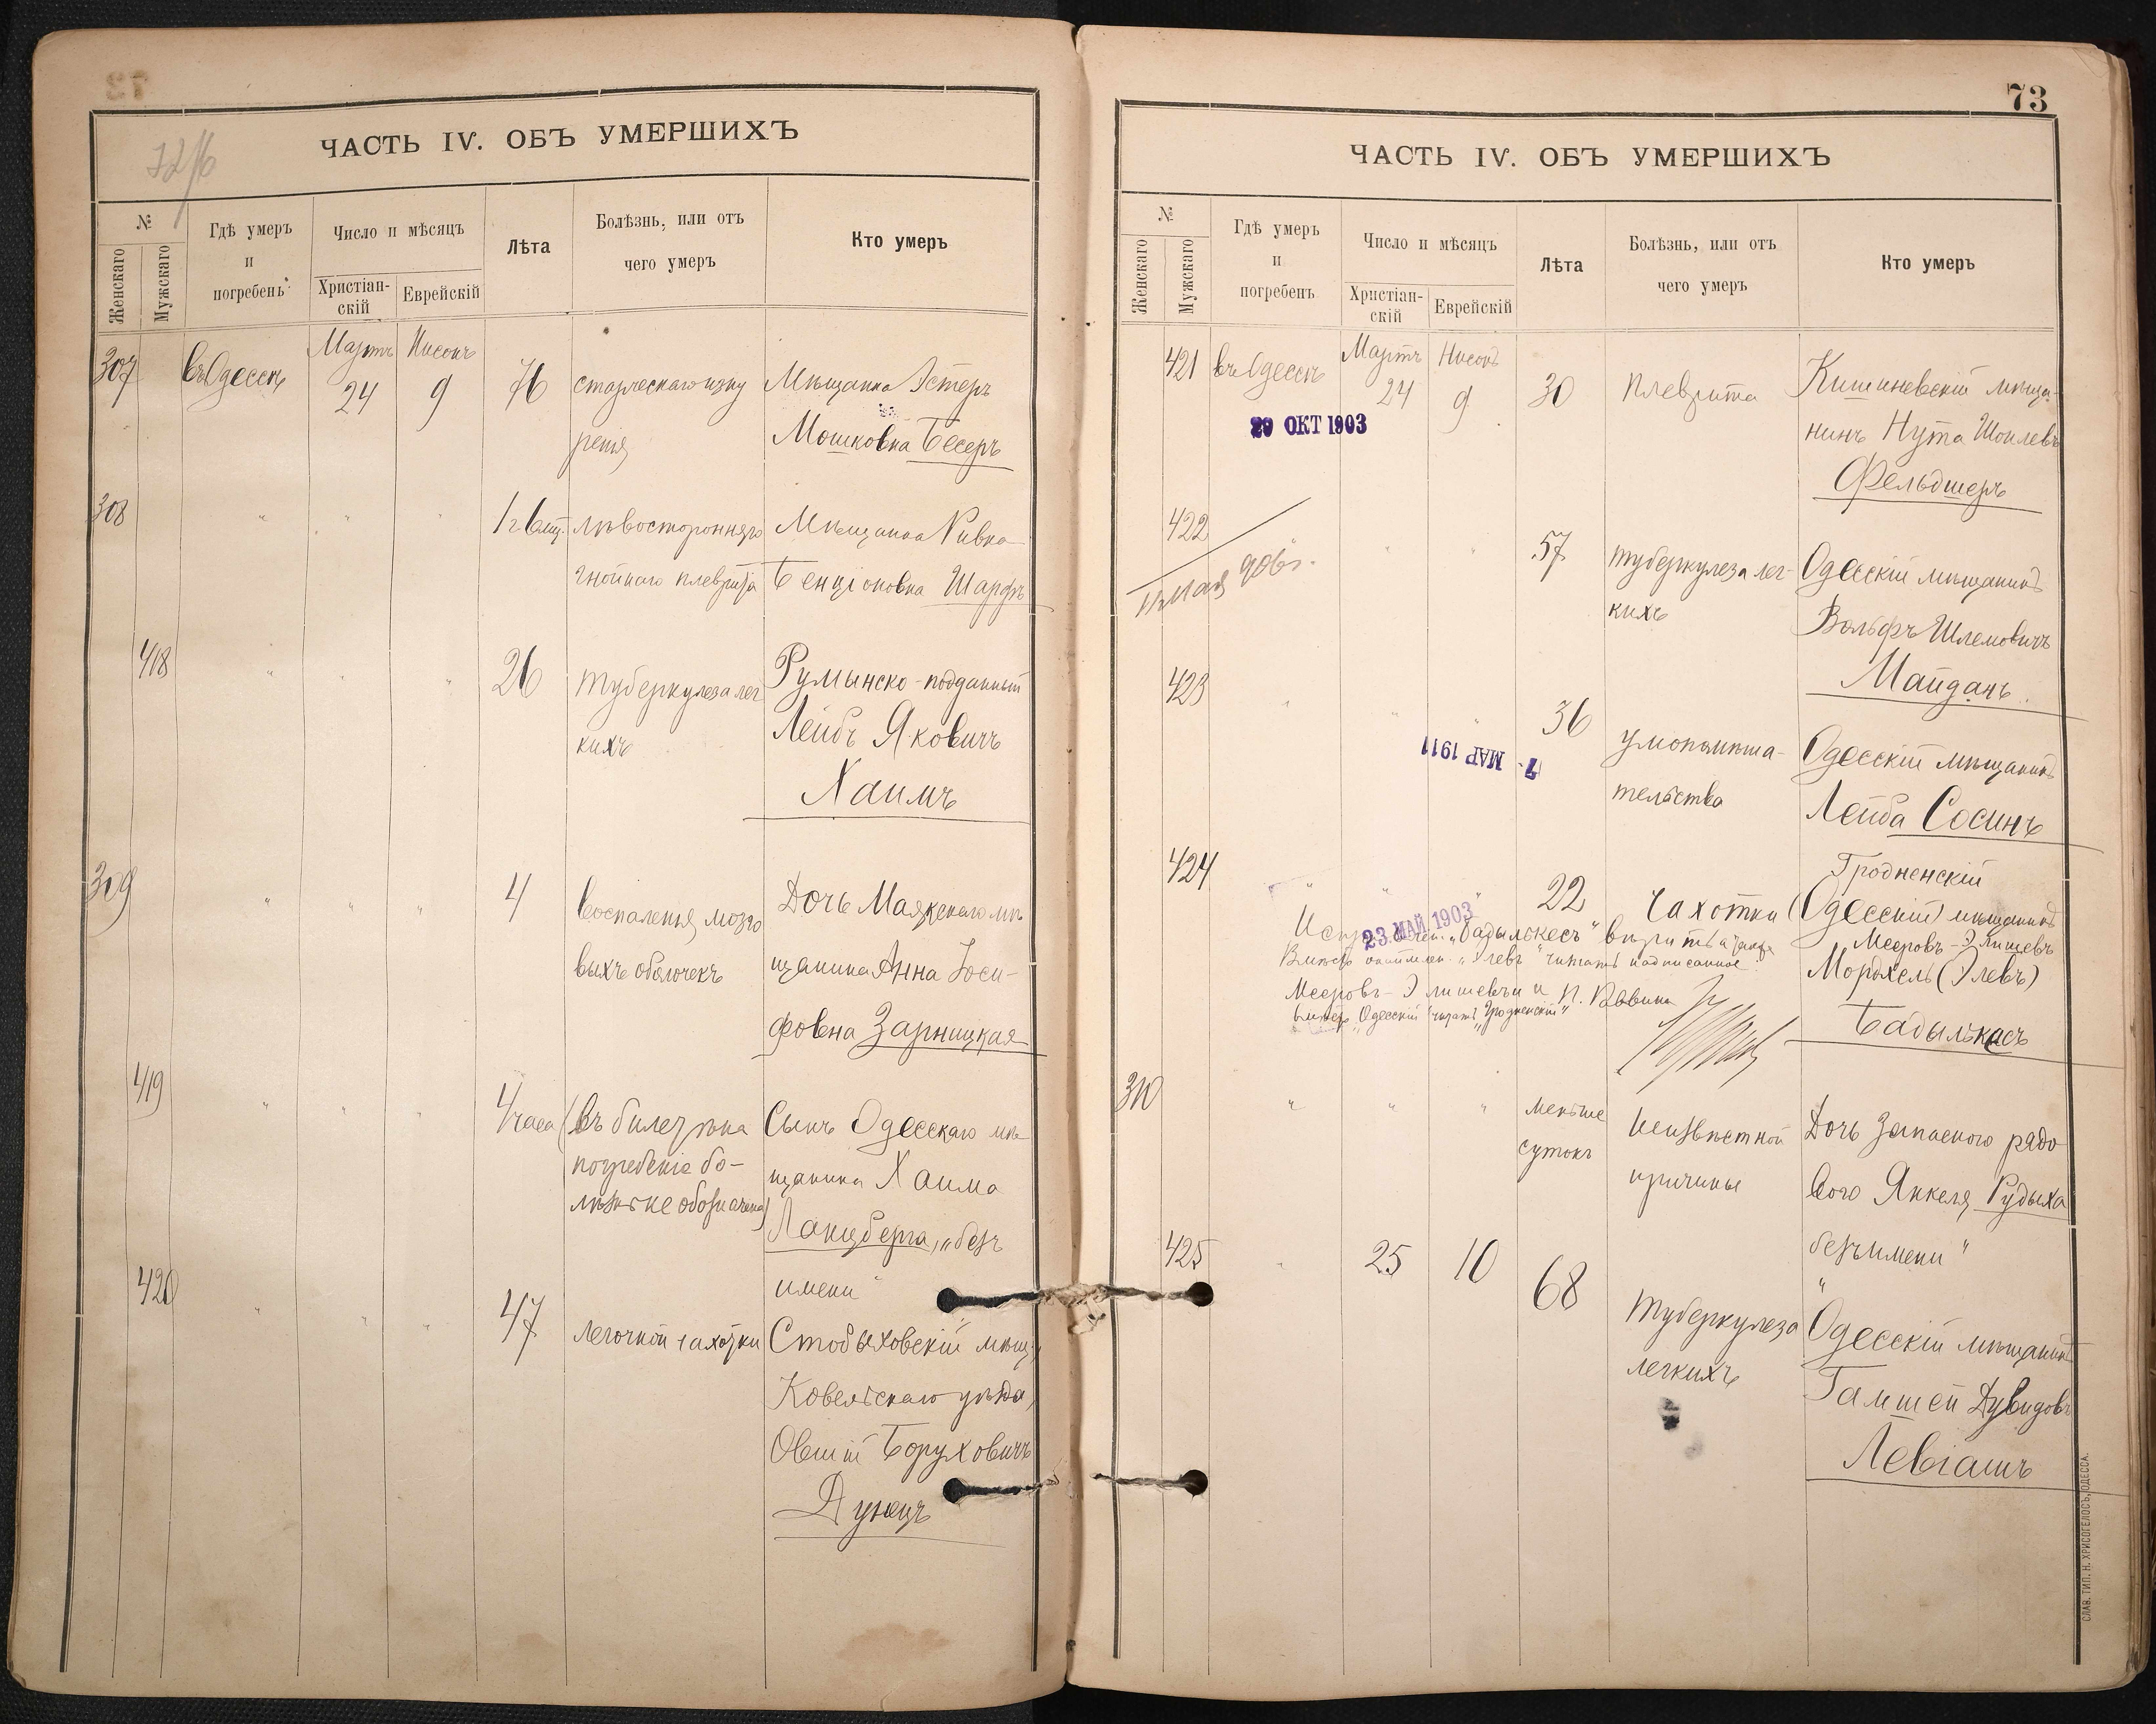 73
ЧАСТЬ IV. ОБЪ УМЕРШИХЪ
№
Женскаго
Мужскаго
Гдѣ умеръ
и
погребенъ
Число и мѣсяцъ
Христіан-
скій
Еврейскій
Лѣта
Болѣзнь, или отъ
чего умеръ
Кто умеръ
307 въ Одессѣ Мартъ 24 Нисонъ 9 76 старческаго изну Мѣщанка Эстеръ
ренія Мошковна Бесеръ
308 " " " 1 г. 6 мц. лѣвосторонняго Мѣщанка Ривка
гнойнаго плеврита Бенціоновна Шарфъ
418 " " " 26 туберкулеза лег Румынско-подданный
кихъ Лейбъ Яковичъ
Хаимъ
309 " " " 4 воспаленія мозго Дочь Маякскаго мѣ
выхъ оболочекъ щанина Анна Іоси-
фовна Зарницкая
419 " " " 4 часа (въ билетѣ на Сынъ Одесскаго мѣ
погребеніе бо- щанина Хаима
лѣзнь не обозначена) Ланцберга, „безъ
имени"
420 " " " 47 легочной чахотки Стобыховскій мѣщ.
Ковельскаго уѣзда,
Овшій Боруховичъ
Дунецъ
73
ЧАСТЬ IV. ОБЪ УМЕРШИХЪ
№
Женскаго
Мужскаго
Гдѣ умеръ
и
погребенъ
Число и мѣсяцъ
Христіан-
скій
Еврейскій
Лѣта
Болѣзнь, или отъ
чего умеръ
Кто умеръ
421 въ Одессѣ Мартъ 24 Нисонъ 9 30 плеврита Кишиневскій мѣща-
29 ОКТ 1903
нинъ Нута Шоилевъ
Фельдшеръ
422 " " 57 туберкулеза лег- Одесскій мѣщанинъ
кихъ Вольфъ Шлемовичъ
Майданъ
423 " " " 36 умопомѣша- Одесскій мѣщанинъ
7- МАР 1911
тельства Лейба Сосинъ
424 " " " 22 Чахотки Гродненскій
(Одесскій) мѣщанинъ
23 МАЙ 1903
„Бадылькесъ" вѣрить
Мееровъ-Элишевъ
Вмѣсто „Элевъ" читать надписанное
Мордхель (Элевъ)
Мееровъ-Элишевъ и
вмѣсто „Одесскій" читать „Гродненскій"
Бадылькесъ
310 " " " меньше неизвѣстной Дочь Запасного рядо
сутокъ причины вого Янкеля Рудыха
безъ имени"
425 " 25 10 68 туберкулеза Одесскій мѣщанинъ
легкихъ Гамшей Дувидовъ
Левіашъ
СЛАВ. ТИП. Н. ХРИСОГЕЛОСЪ, ОДЕССА.